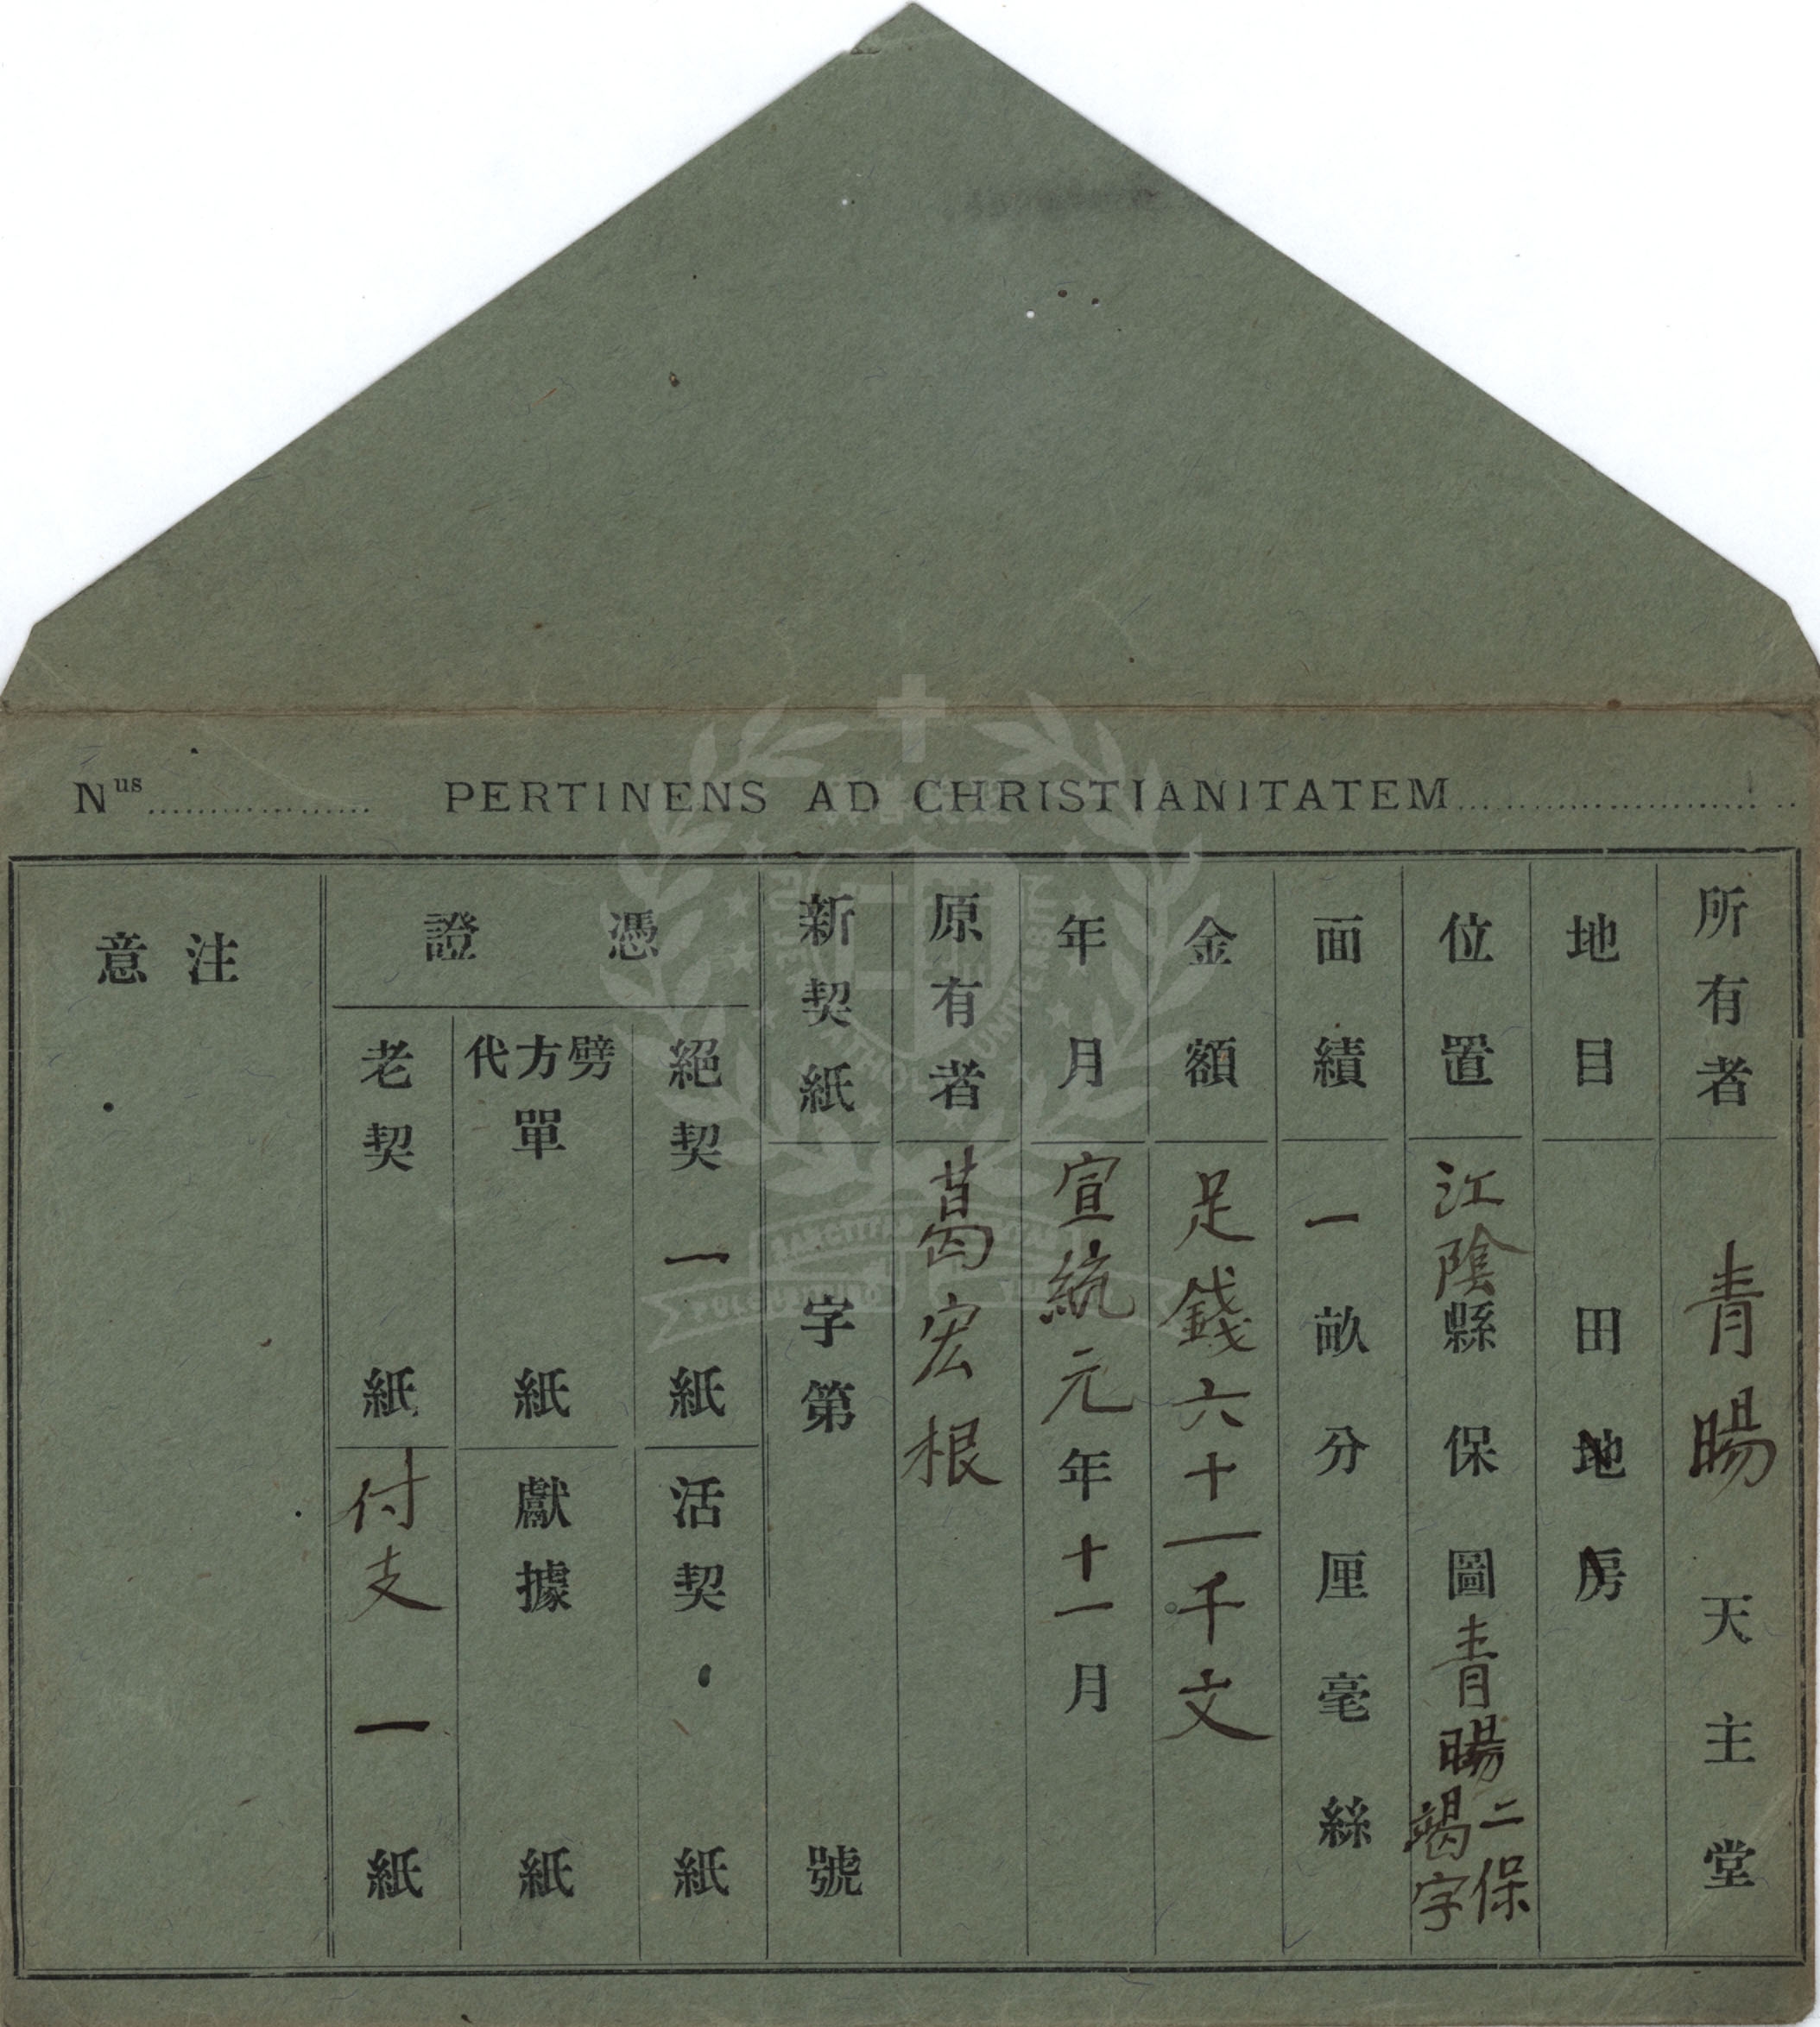 Nus PERTINENS AD CHRISTIANITATEM
所有者 青暘 天主堂
地目 田地房
位置 江陰縣 保 圖 青暘二保竭字
面績 一 畝 分 厘 毫 絲
金額 足錢六十一千文
年月 宣統元年十一月
原有者 葛宏根
新契紙 字第 號
憑證
絕契 一 紙
活契 紙
劈方代單 紙
獻據 紙
老契 紙
付支 一 紙
注意